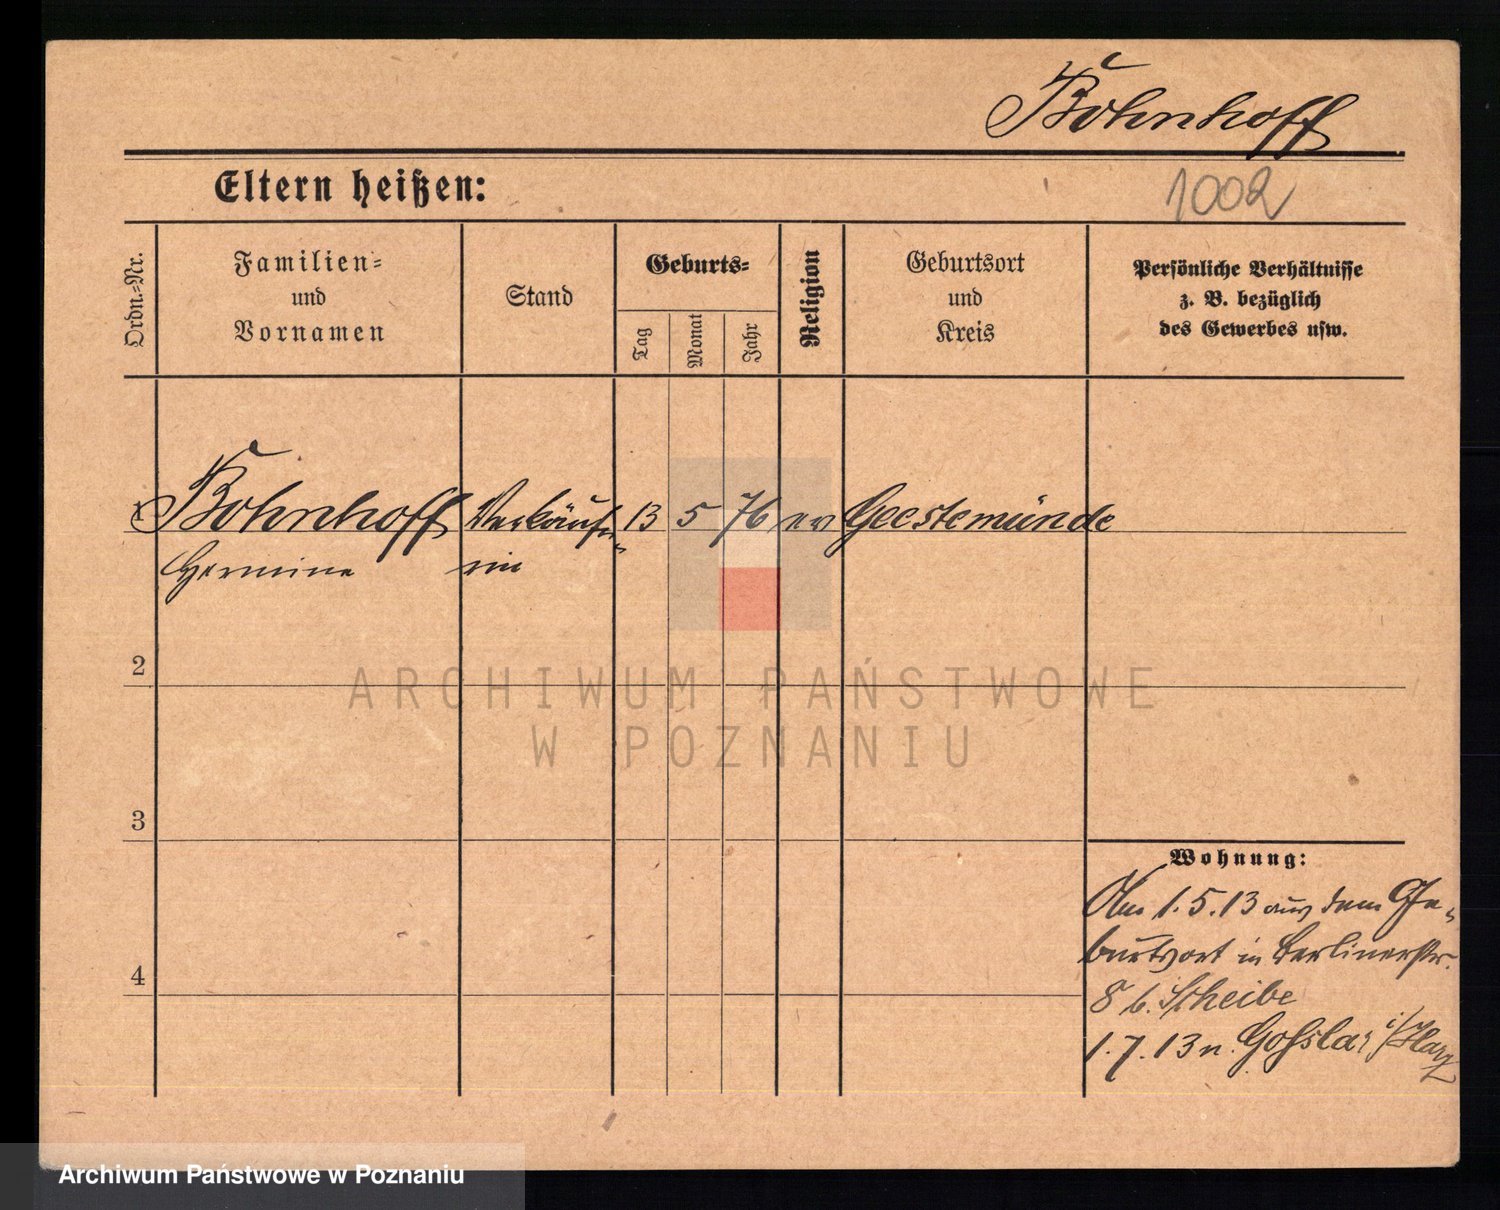 Bohnhoff
Eltern heißen:
1002
Ordn.-Nr.
Familien-
und
Vornamen
Stand
Geburts-
Tag
Monat
Jahr
Religion
Geburtsort
und
Kreis
Persönliche Verhältnisse
z. B. bezüglich
des Gewerbes usw.
1 Bohnhoff Verkäufe- 13 5 76 ev Geestemünde
Hermine rin
2
ARCHIWUM PAŃSTWOWE
W POZNANIU
3
Wohnung:
Am 1.5.13 aus dem Ge-
burtsort in Berlinerstr.
4
8 b. Scheibe
1.7.13 n. Goßlar i/Harz
Archiwum Państwowe w Poznaniu